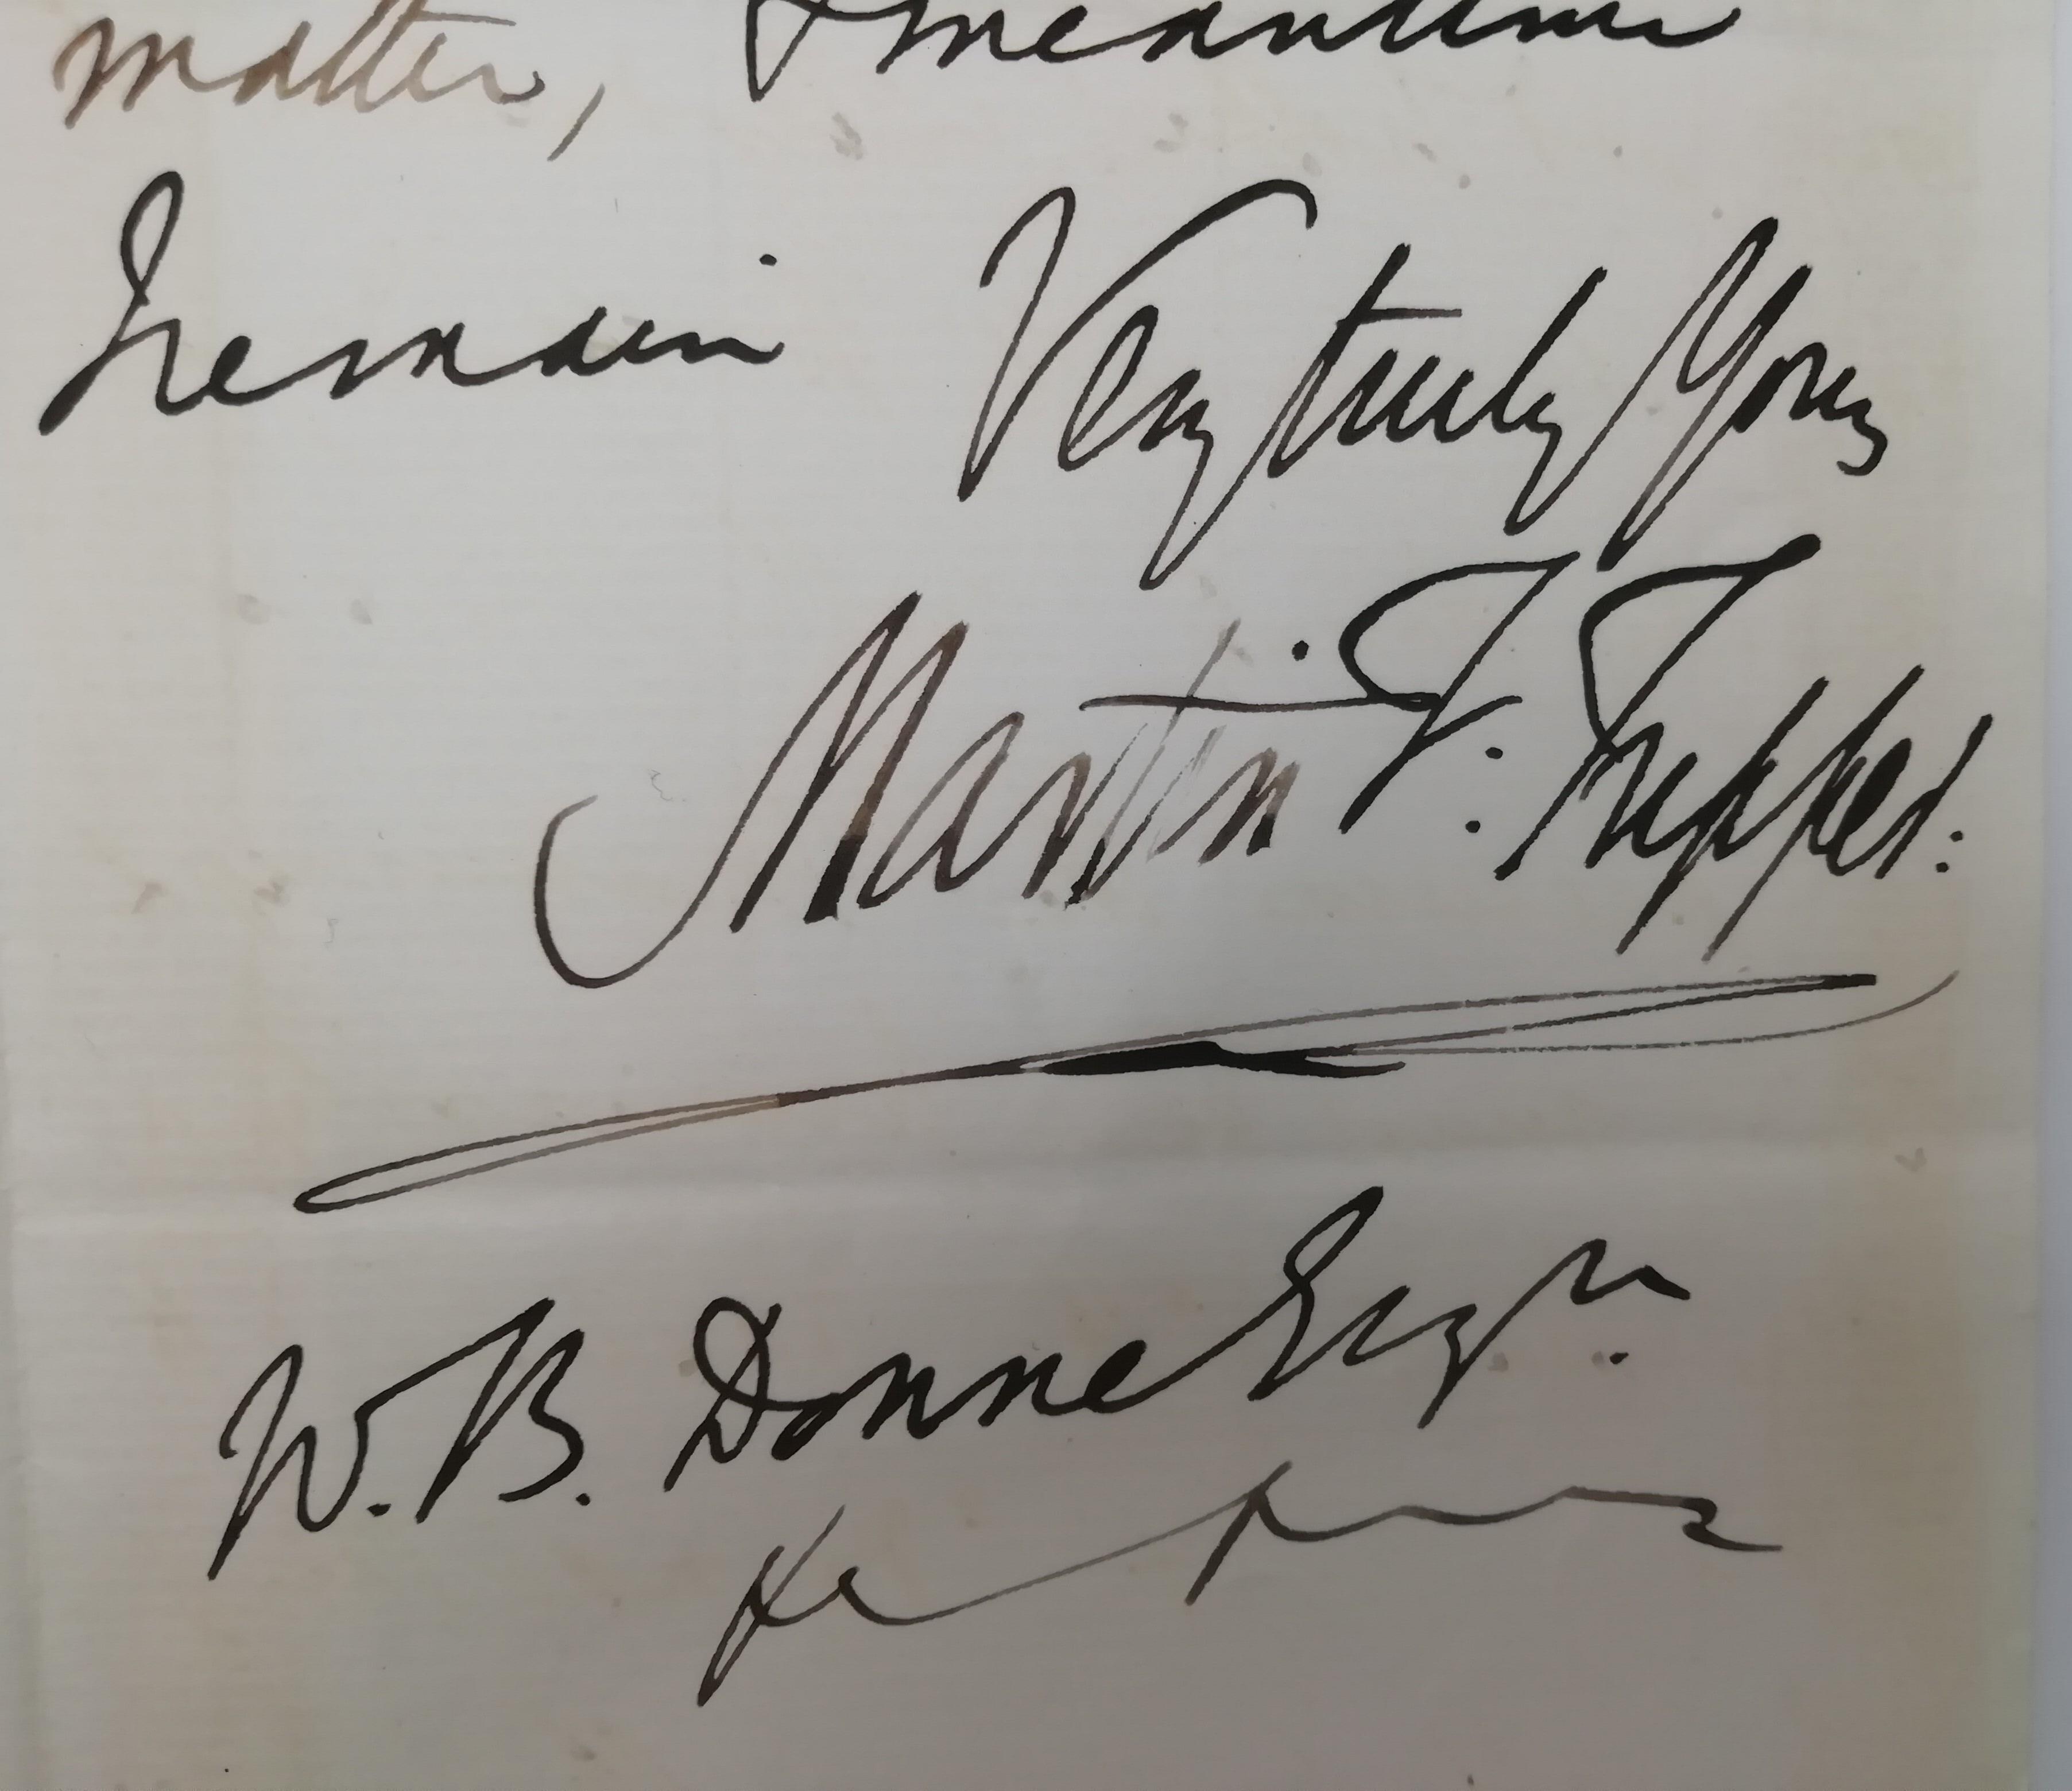 matter, & meantime
I remain Very truly Yours
Martin F. Tupper.
W. B. Donne Esqr.